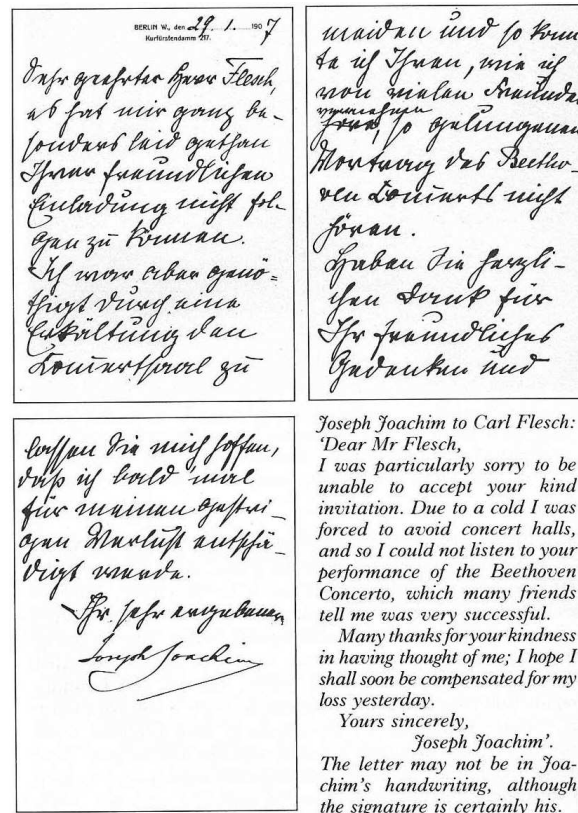 BERLIN W., den 29. 1. 1907
Kurfürstendamm 217.
Sehr geehrter Herr Flesch,
es hat mir ganz be-
sonders leid gethan
Ihrer freundlichen
Einladung nicht fol-
gen zu können.
Ich war aber genö-
thigt durch eine
Erkältung den
Concertsaal zu
meiden und so konn-
te ich Ihren, wie ich
von vielen Freunden
vernehme
höre, so gelungenen
Vortrag des Beetho-
ven Concerts nicht
hören.
Haben Sie herzli-
chen Dank für
Ihr freundliches
Gedenken und
lassen Sie mich hoffen,
daß ich bald mal
für meinen gestri-
gen Verlust entschä-
digt werde.
Ihr sehr ergebener
Joseph Joachim
Joseph Joachim to Carl Flesch:
'Dear Mr Flesch,
I was particularly sorry to be
unable to accept your kind
invitation. Due to a cold I was
forced to avoid concert halls,
and so I could not listen to your
performance of the Beethoven
Concerto, which many friends
tell me was very successful.
Many thanks for your kindness
in having thought of me; I hope I
shall soon be compensated for my
loss yesterday.
Yours sincerely,
Joseph Joachim'.
The letter may not be in Joa-
chim's handwriting, although
the signature is certainly his.